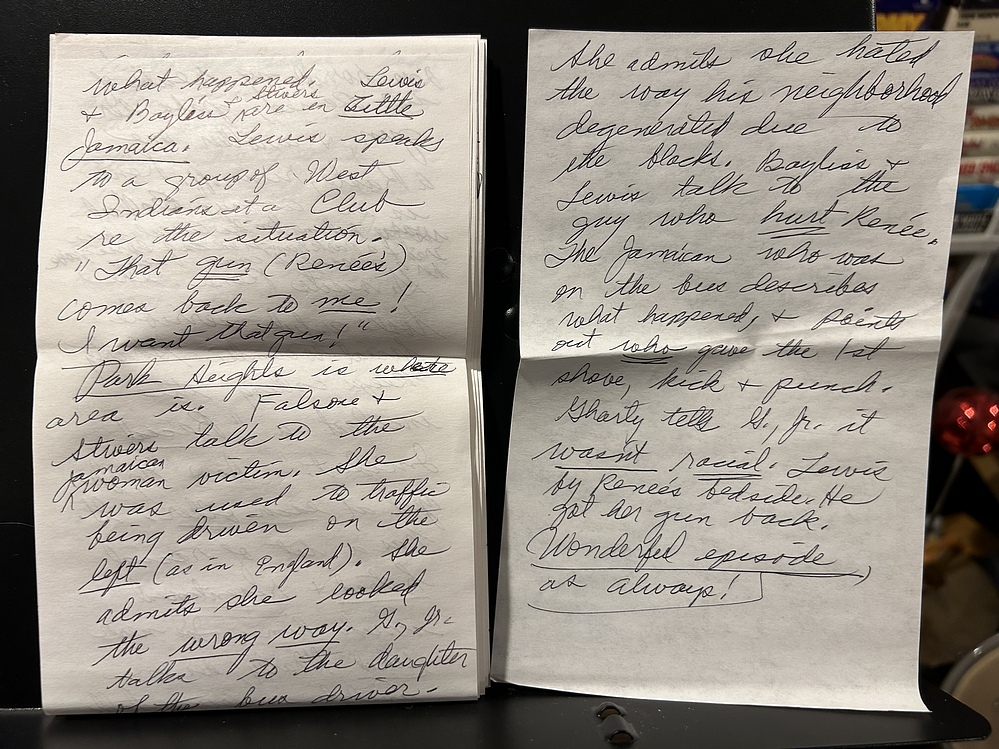 what happened. Lewis
& Bayliss & Stivers are in Little
Jamaica. Lewis speaks
to a group of West
Indians at a Club
re the situation.
"That gun (Renée's)
comes back to me!
I want that gun!"
Park Heights is where
area is. Falsone &
Stivers talk to the
Jamaican woman victim. She
was used to traffic
being driven on the
left (as in England). She
admits she looked
the wrong way. G., Jr.
talks to the daughter
of the bus driver.
She admits she hated
the way his neighborhood
degenerated due to
the blacks. Bayliss &
Lewis talk to the
guy who hurt Renée.
The Jamaican who was
on the bus describes
what happened, & points
out who gave the 1st
shove, kick & punch.
Gharty tells G., Jr. it
wasn't racial. Lewis
by Renée's bedside. He
got her gun back.
Wonderful episode
as always!